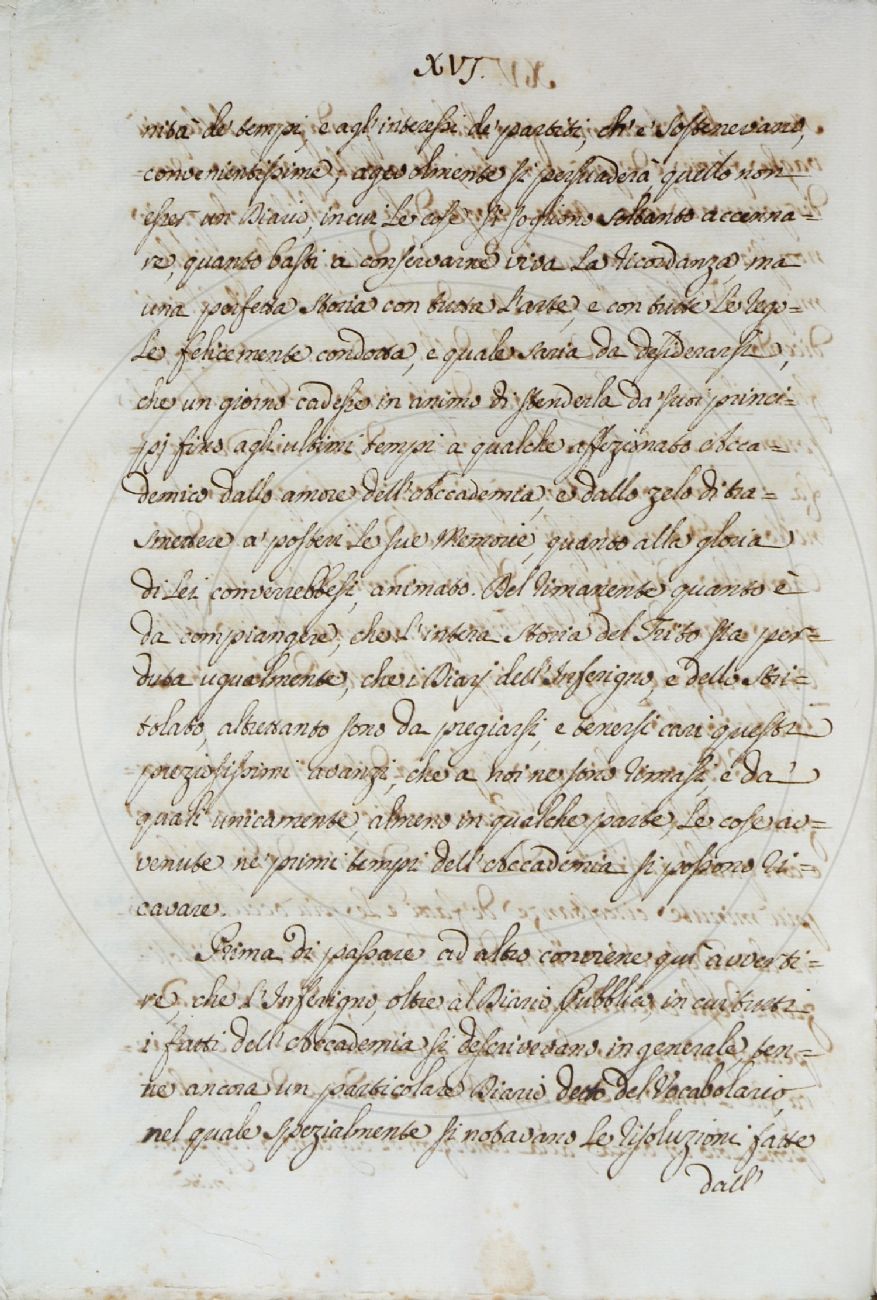 XVI.
nità de' tempi, e agl'interessi de' partiti, ch'e' sostenevano,
convenientissime; agevolmente si persuaderà quello non
esser un Diario, in cui le cose si sogliono soltanto accenna=
re, quanto basti a conservarne viva la ricordanza, ma
una perfetta Storia con tutta l'arte, e con tutte le rego=
le felicemente condotta, e quale saria da desiderarsi,
che un giorno cadesse in animo di stenderla da' suoi princi=
pj fino agli ultimi tempi a qualche affezionato Acca=
demico dallo amore dell'Accademia, e dallo zelo di tra=
smettere a' posteri le sue Memorie, quanto alla gloria
di lei converrebbesi, animato. Del rimanente quanto è
da compiangere, che l'intera Storia del Trito sia per=
duta ugualmente, che i Diarj dell'Inferigno, e dello Stri=
tolato, altrettanto sono da pregiarsi, e tenersi cari questi
preziosissimi avanzi, che a noi ne sono rimasti, e da'
quali unicamente, almeno in qualche parte, le cose av=
venute ne' primi tempi dell'Accademia si possono ri=
cavare.
Prima di passare ad altro conviene quì avverti=
re, che l'Inferigno, oltre al Diario Pubblico, in cui tutti
i fatti dell'Accademia si descrivevano in generale, ten=
ne ancora un particolare Diario detto del Vocabolario,
nel quale spezialmente si notavano le risoluzioni fatte
dall'